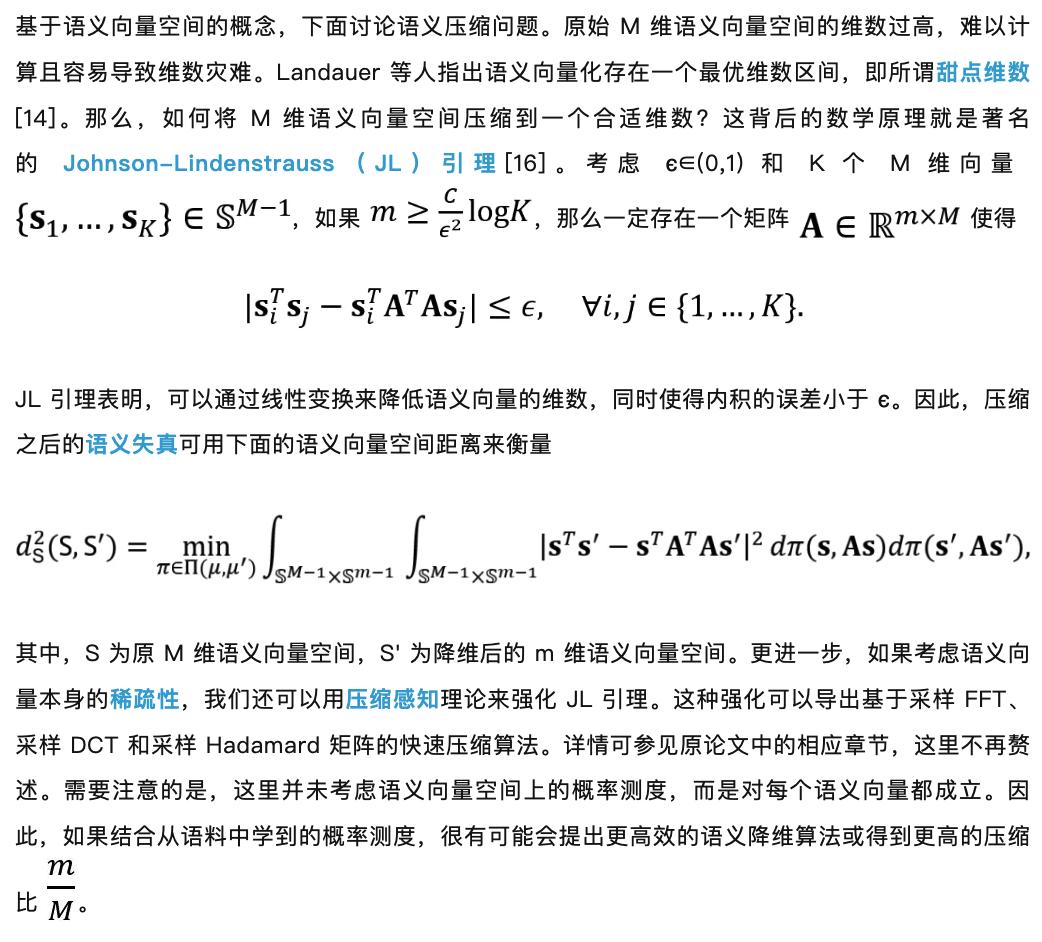 基于语义向量空间的概念，下面讨论语义压缩问题。原始 M 维语义向量空间的维数过高，难以计
算且容易导致维数灾难。Landauer 等人指出语义向量化存在一个最优维数区间，即所谓甜点维数
[14]。那么，如何将 M 维语义向量空间压缩到一个合适维数？这背后的数学原理就是著名
的 Johnson–Lindenstrauss（JL）引理[16]。考虑 ϵ∈(0,1) 和 K 个 M 维向量
{𝐬₁, …, 𝐬_K} ∈ 𝕊^{M−1}，如果 m ≥ C/ϵ² logK，那么一定存在一个矩阵 𝐀 ∈ ℝ^{m×M} 使得
|𝐬_i^T 𝐬_j − 𝐬_i^T 𝐀^T 𝐀𝐬_j| ≤ ϵ, ∀i, j ∈ {1, …, K}.
JL 引理表明，可以通过线性变换来降低语义向量的维数，同时使得内积的误差小于 ϵ。因此，压缩
之后的语义失真可用下面的语义向量空间距离来衡量
d_S^2(S, S′) = min_{π∈Π(μ,μ′)} ∫_{𝕊^{M−1}×𝕊^{m−1}} ∫_{𝕊^{M−1}×𝕊^{m−1}} |𝐬^T 𝐬′ − 𝐬^T 𝐀^T 𝐀𝐬′|² dπ(𝐬, 𝐀𝐬)dπ(𝐬′, 𝐀𝐬′),
其中，S 为原 M 维语义向量空间，S' 为降维后的 m 维语义向量空间。更进一步，如果考虑语义向
量本身的稀疏性，我们还可以用压缩感知理论来强化 JL 引理。这种强化可以导出基于采样 FFT、
采样 DCT 和采样 Hadamard 矩阵的快速压缩算法。详情可参见原论文中的相应章节，这里不再赘
述。需要注意的是，这里并未考虑语义向量空间上的概率测度，而是对每个语义向量都成立。因
此，如果结合从语料中学到的概率测度，很有可能会提出更高效的语义降维算法或得到更高的压缩
比 m/M。